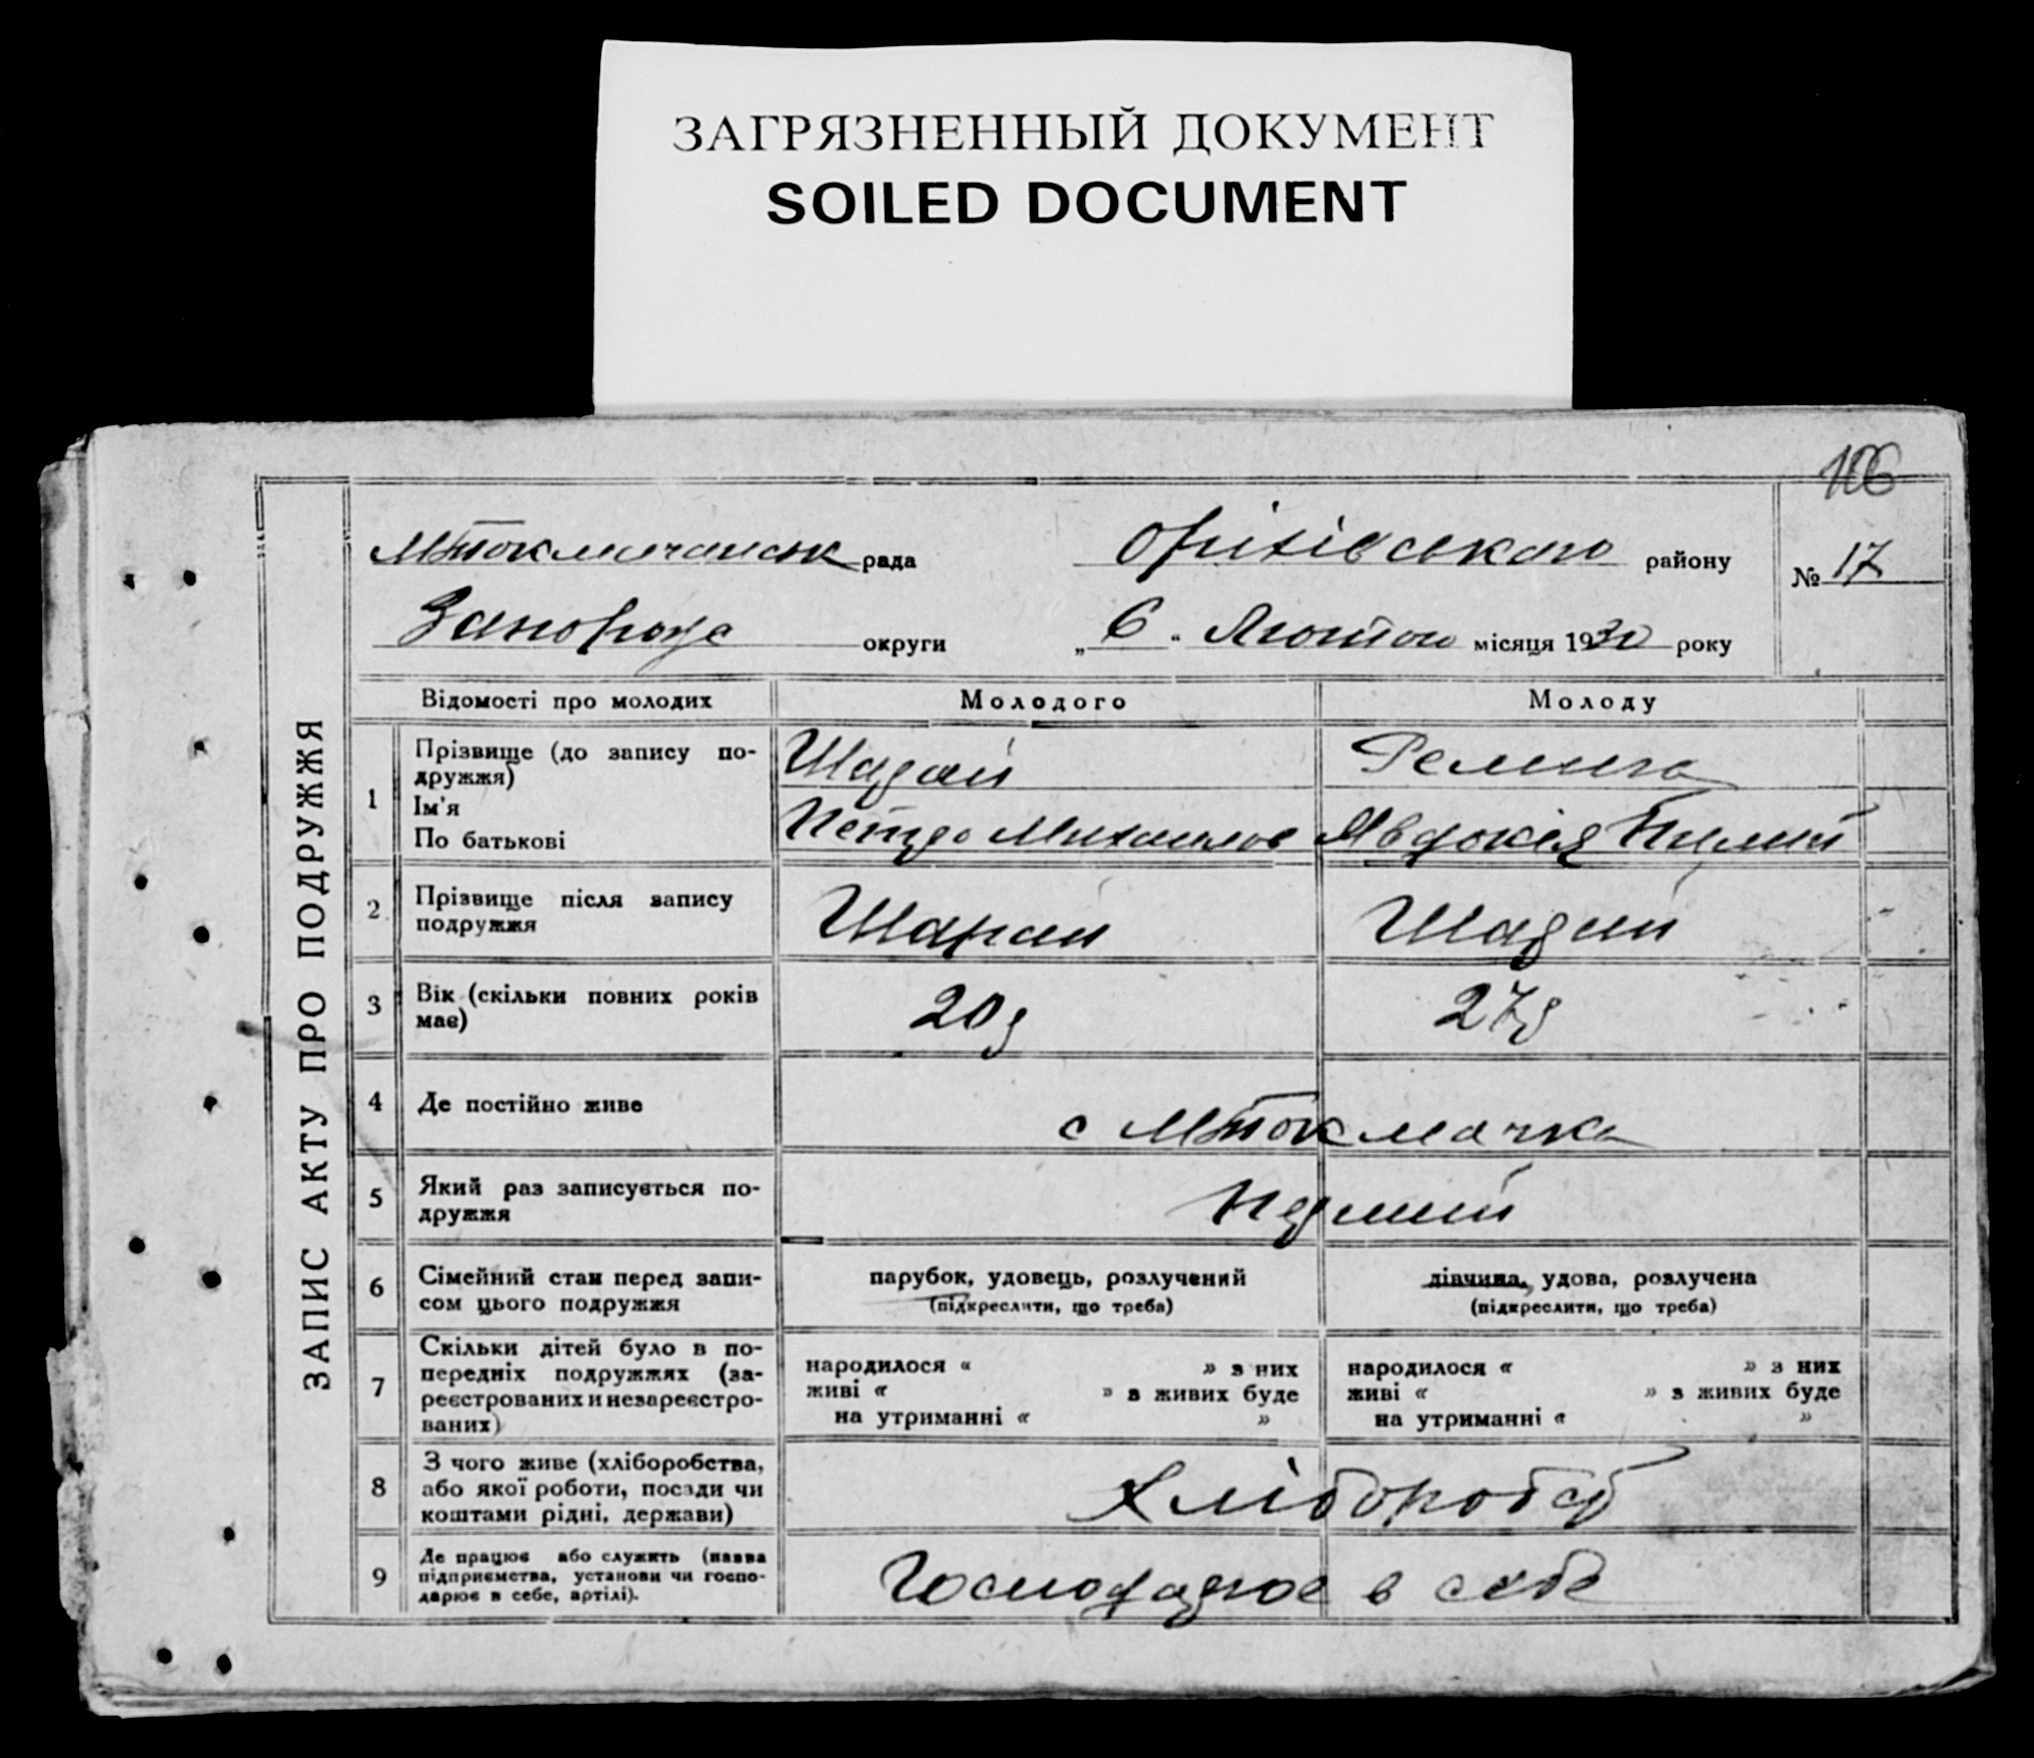 ЗАГРЯЗНЕННЫЙ ДОКУМЕНТ
SOILED DOCUMENT
106
ЗАПИС АКТУ ПРО ПОДРУЖЖЯ
Мтокмачанськ рада Оріхівського району № 17
Запоріжс округи „6" Лютого місяця 1930 року
Відомості про молодих Молодого Молоду
1 Прізвище (до запису по-
дружжя) Шарай Ремига
Ім'я
По батькові Петро Михаилов Явдокія
2 Прізвище після запису
подружжя Шарай Шарай
3 Вік (скільки повних років
має) 20р 27р
4 Де постійно живе с Мтокмачка
5 Який раз записується по-
дружжя Перший
6 Сімейний стан перед запи-
сом цього подружжя
парубок, удовець, розлучений
(підкреслити, що треба)
дівчина, удова, розлучена
(підкреслити, що треба)
7 Скільки дітей було в по-
передніх подружжях (за-
реєстрованих и незареєстро-
ваних)
народилося « » з них
живі « » з живих буде
на утриманні « »
народилося « » з них
живі « » з живих буде
на утриманні « »
8 З чого живе (хліборобства,
або якої роботи, посади чи
коштами рідні, держави) Хлібороб
9 Де працює або служить (назва
підприємства, установи чи госпо-
дарює в себе, артілі). Господарює в себе